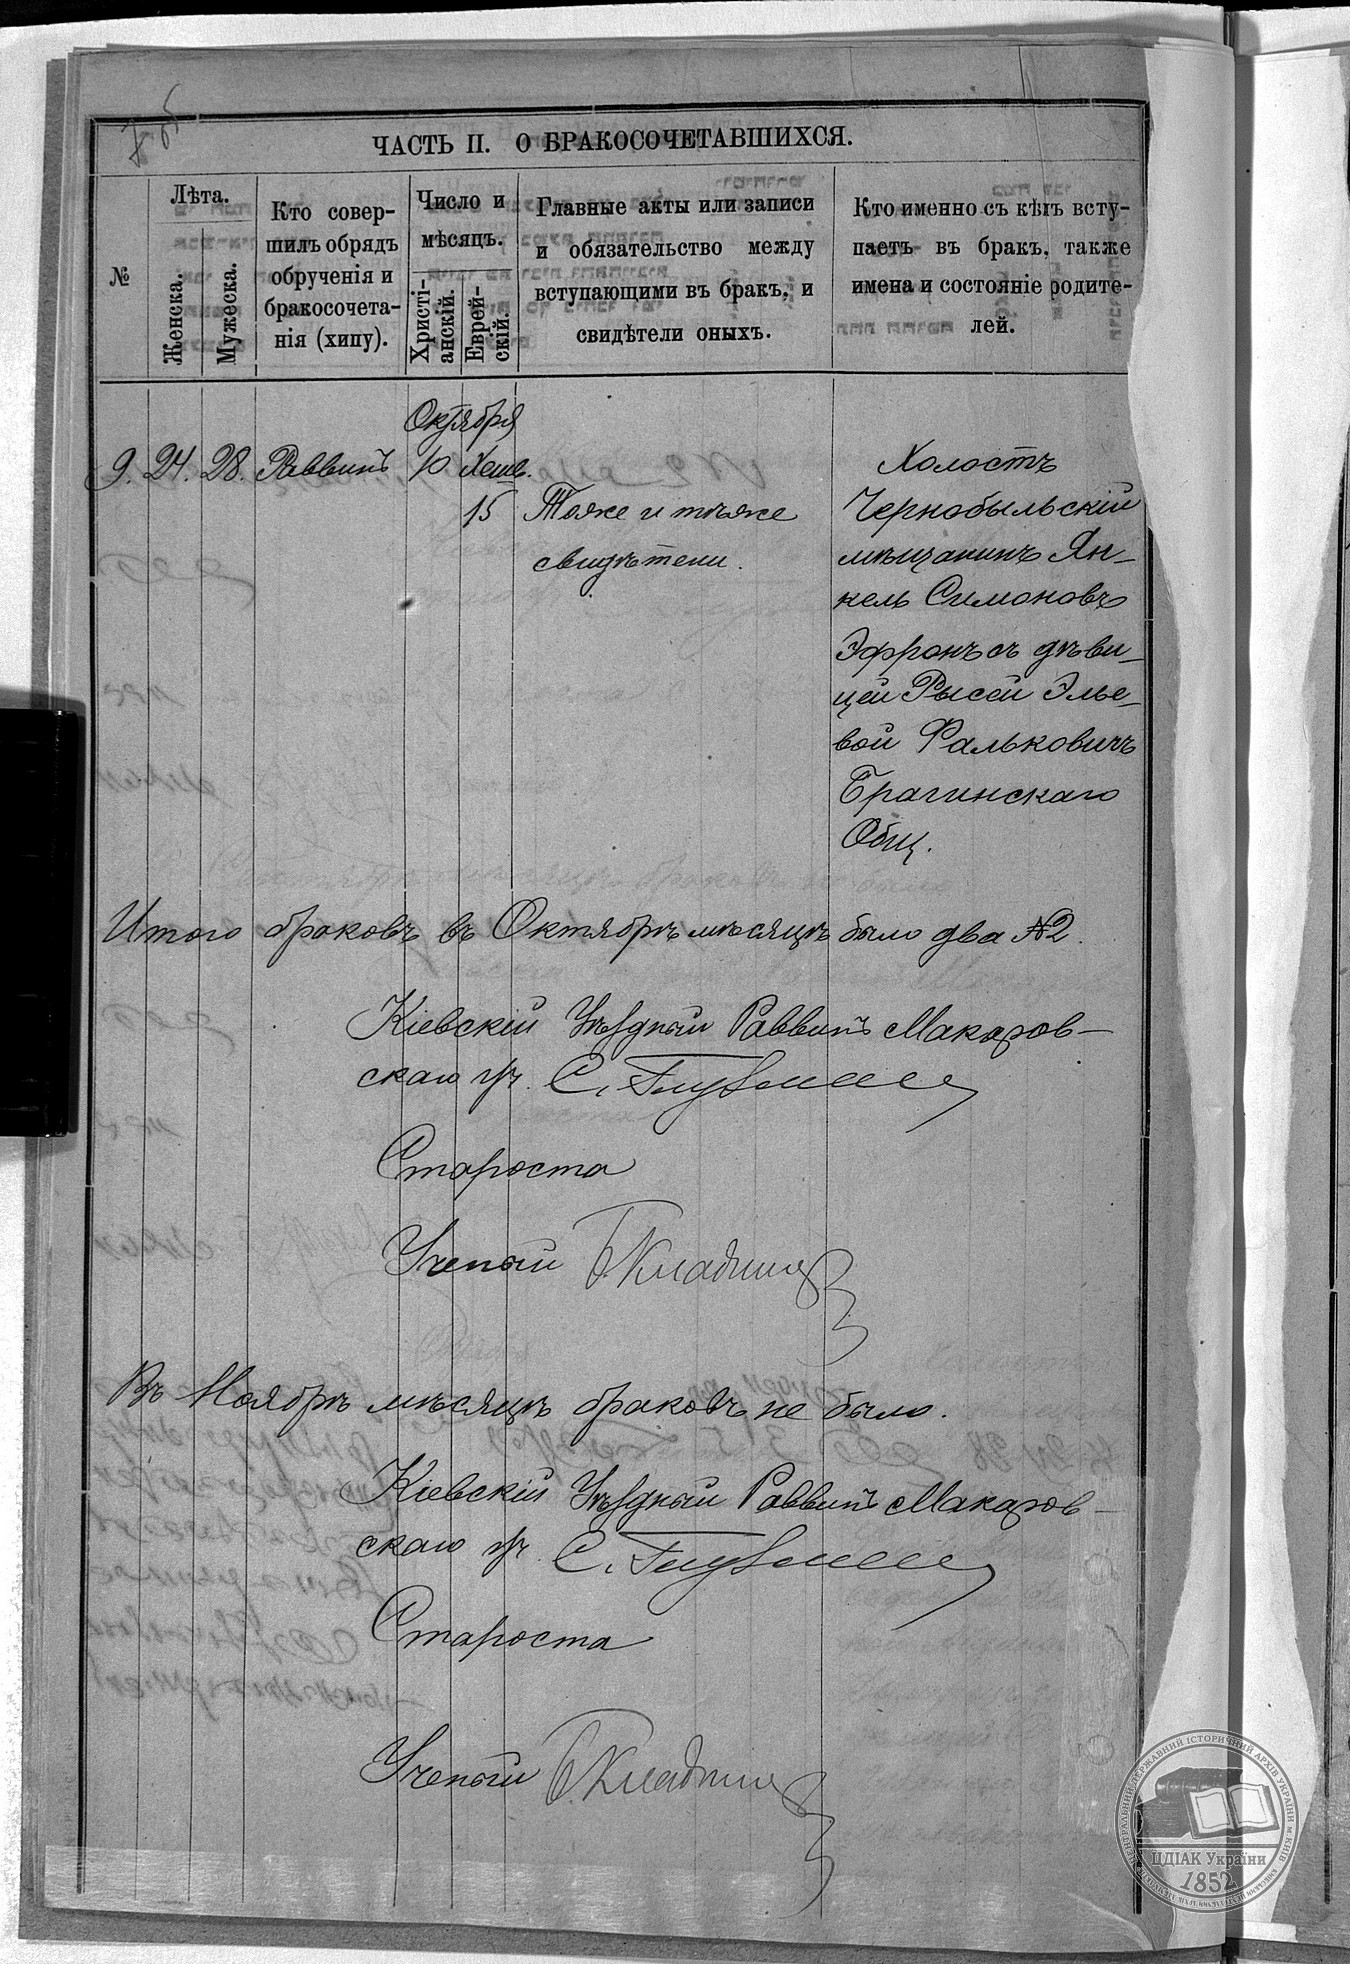 ЧАСТЬ II. О БРАКОСОЧЕТАВШИХСЯ.
№
Лѣта.
Женска.
Мужеска.
Кто совер-
шилъ обрядъ
обрученія и
бракосочета-
нія (хипу).
Число и
мѣсяцъ.
Христі-
анскій.
Еврей-
скій.
Главные акты или записи
и обязательство между
вступающими въ бракъ, и
свидѣтели оныхъ.
Кто именно съ кѣмъ всту-
паетъ въ бракъ, также
имена и состояніе родите-
лей.
Октября
9. 24. 28. Раввинъ 10 Хешв.
15
Тоже и тѣже
свидѣтели.
Холостъ
Чернобыльскій
мѣщанинъ Ян-
кель Симоновъ
Эфронъ съ дѣви-
цей Рысей Элье-
вой Фальковичъ
Брагинскаго
Общ.
Итого браковъ въ Октябрѣ мѣсяцѣ было два №2.
Кіевскій Уѣздный Раввинъ Макаров-
скаго уч. С.
Староста
Ученый
Въ Ноябрѣ мѣсяцѣ браковъ не было.
Кіевскій Уѣздный Раввинъ Макаров-
скаго уч. С.
Староста
Ученый
ЦЕНТРАЛЬНИЙ ДЕРЖАВНИЙ ІСТОРИЧНИЙ АРХІВ УКРАЇНИ м. КИЇВ
ЦДІАК України
1852